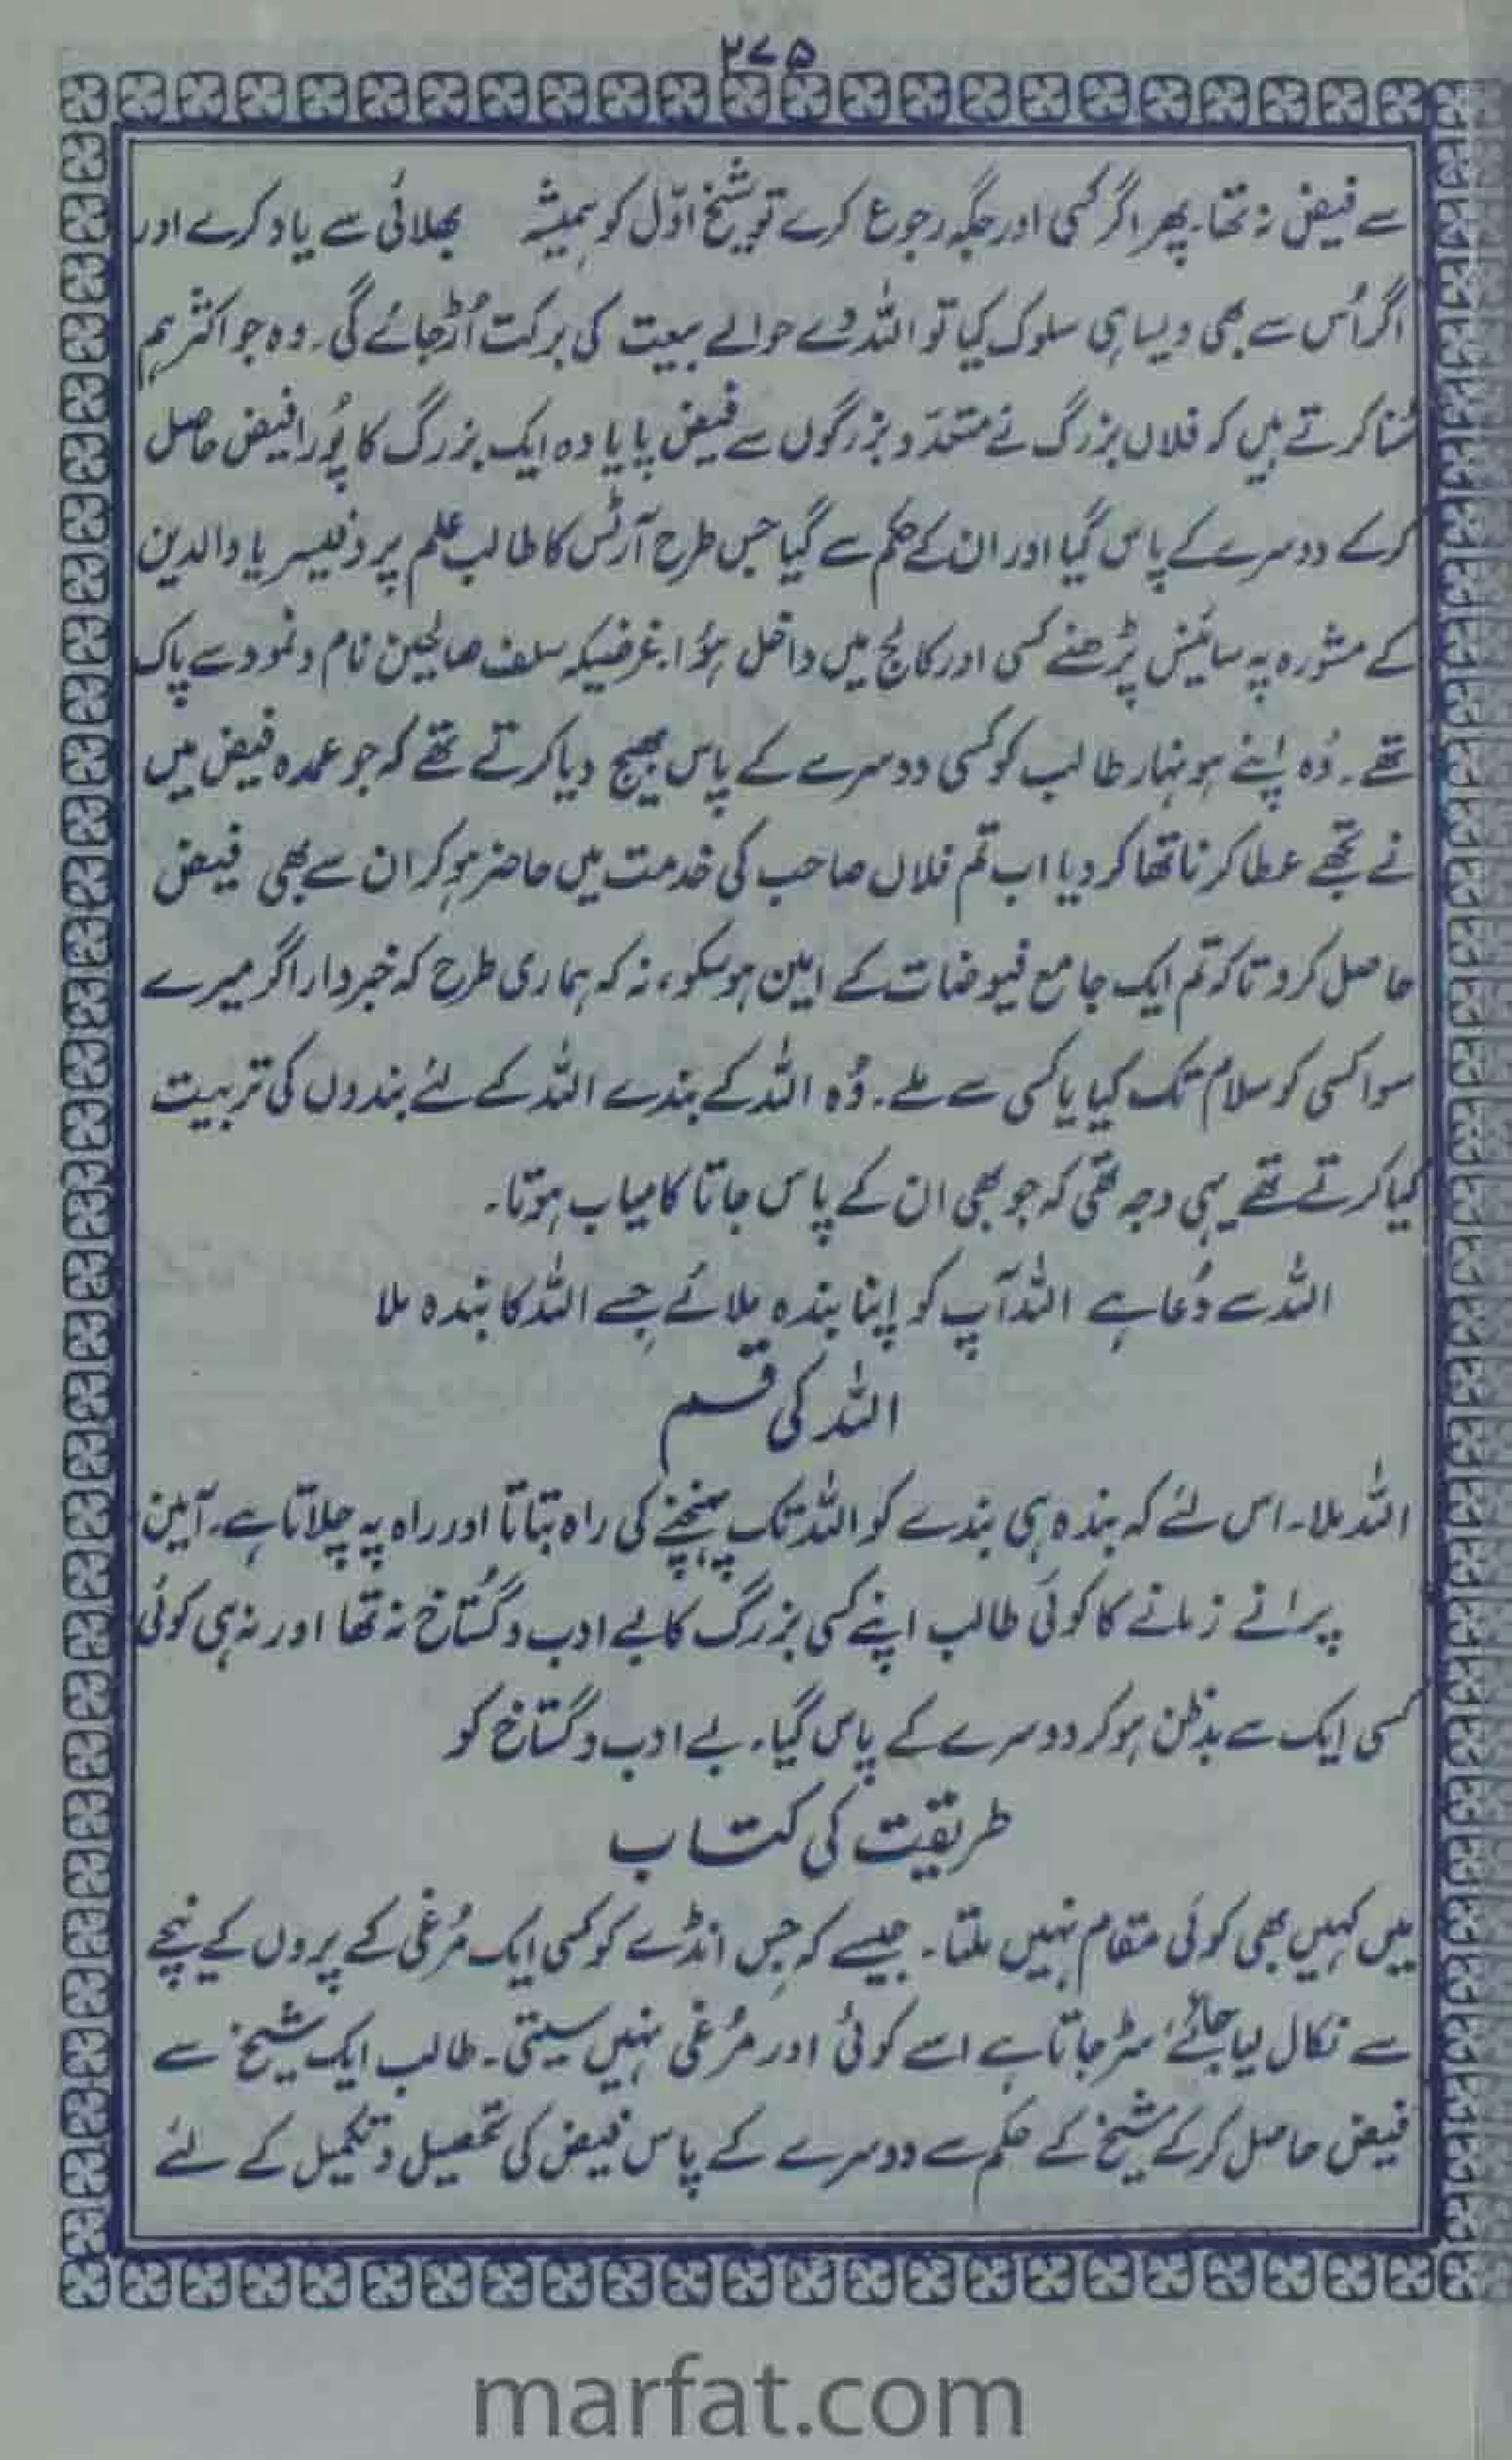 ۲۷۵
سے فیض نہ تھا۔ پھر اگر کسی اور جگہ رجوع کرے تو شیخ اوّل کو ہمیشہ بھلائی سے یاد کرے اور
اگر اُس سے بھی ویسا ہی سلوک کیا تو اللہ دے حوالے بیعت کی برکت اُڑ جائے گی۔ وہ جو اکثر ہم
سُنا کرتے ہیں کہ فلاں بزرگ نے متعدّد بزرگوں سے فیض پایا وہ ایک بزرگ کا پُورا فیض حاصل
کرکے دوسرے کے پاس گیا اور ان کے حکم سے گیا جس طرح آرٹس کا طالب علم پروفیسر یا والدین
کے مشورہ پہ سائینس پڑھنے کسی اور کالج میں داخل ہؤا۔ غرضیکہ سلف صالحین نام و نمود سے پاک
تھے۔ وُہ اپنے ہونہار طالب کو کسی دوسرے کے پاس بھیج دیا کرتے تھے کہ جو عمدہ فیض میں
نے تجھے عطا کرنا تھا کر دیا اب تم فلاں صاحب کی خدمت میں حاضر ہو کر ان سے بھی فیض
حاصل کرو تاکہ تم ایک جامع فیوضات کے امین ہو سکو، نہ کہ ہماری طرح کہ خبردار اگر میرے
سوا کسی کو سلام تک کیا یا کسی سے ملے۔ وُہ اللہ کے بندے اللہ کے لئے بندوں کی تربیت
کیا کرتے تھے یہی وجہ تھی کہ جو بھی ان کے پاس جاتا کامیاب ہوتا۔
اللہ سے دُعا ہے اللہ آپ کو اپنا بندہ ملائے جسے اللہ کا بندہ ملا
اللہ کی قسم
اللہ ملا۔ اس لئے کہ بندہ ہی بندے کو اللہ تک پہنچنے کی راہ بتاتا اور راہ پہ چلاتا ہے۔ آمین
پرانے زمانے کا کوئی طالب اپنے کسی بزرگ کا بے ادب و گُستاخ نہ تھا اور نہ ہی کوئی
کسی ایک سے بدظن ہو کر دوسرے کے پاس گیا۔ بے ادب و گستاخ کو
طریقت کی کتاب
میں کہیں بھی کوئی مقام نہیں ملتا۔ جیسے کہ جس انڈے کو کسی ایک مُرغی کے پروں کے نیچے
سے نکال لیا جائے سڑ جاتا ہے اسے کوئی اور مُرغی نہیں سیتی۔ طالب ایک شیخ سے
فیض حاصل کرکے شیخ کے حکم سے دوسرے کے پاس فیض کی تحصیل و تکمیل کے لئے
marfat.com